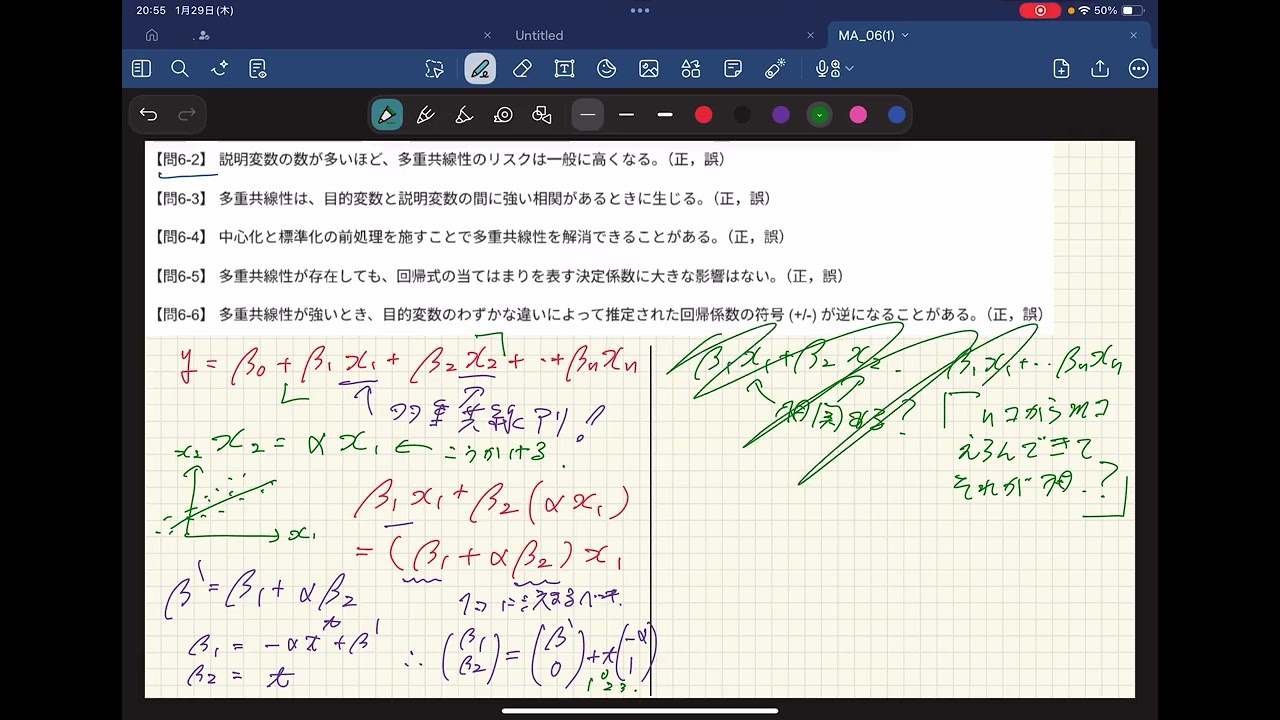 20:55 1月29日(木)
50%
Untitled
MA_06(1)
【問6-2】 説明変数の数が多いほど、多重共線性のリスクは一般に高くなる。（正，誤）
【問6-3】 多重共線性は、目的変数と説明変数の間に強い相関があるときに生じる。（正，誤）
【問6-4】 中心化と標準化の前処理を施すことで多重共線性を解消できることがある。（正，誤）
【問6-5】 多重共線性が存在しても、回帰式の当てはまりを表す決定係数に大きな影響はない。（正，誤）
【問6-6】 多重共線性が強いとき、目的変数のわずかな違いによって推定された回帰係数の符号 (+/-) が逆になることがある。（正，誤）
y = β₀ + β₁x₁ + β₂x₂ + … + βₙxₙ
重共線アリ!
x₂ = αx₁ ← こうかける.
x₂
x₁
β₁x₁ + β₂(αx₁)
= (β₁ + αβ₂)x₁
β' = β₁ + αβ₂
1コに
β₁ = -αt + β'
β₂ = t
∴ (β₁ β₂) = (β' 0) + t(-α 1)
0 1 2 3 .
β₁x₁ + β₂x₂ . β₁x₁ + … βₙxₙ
相関ある?
「nコからmコ
えらんできて
それが相.?」